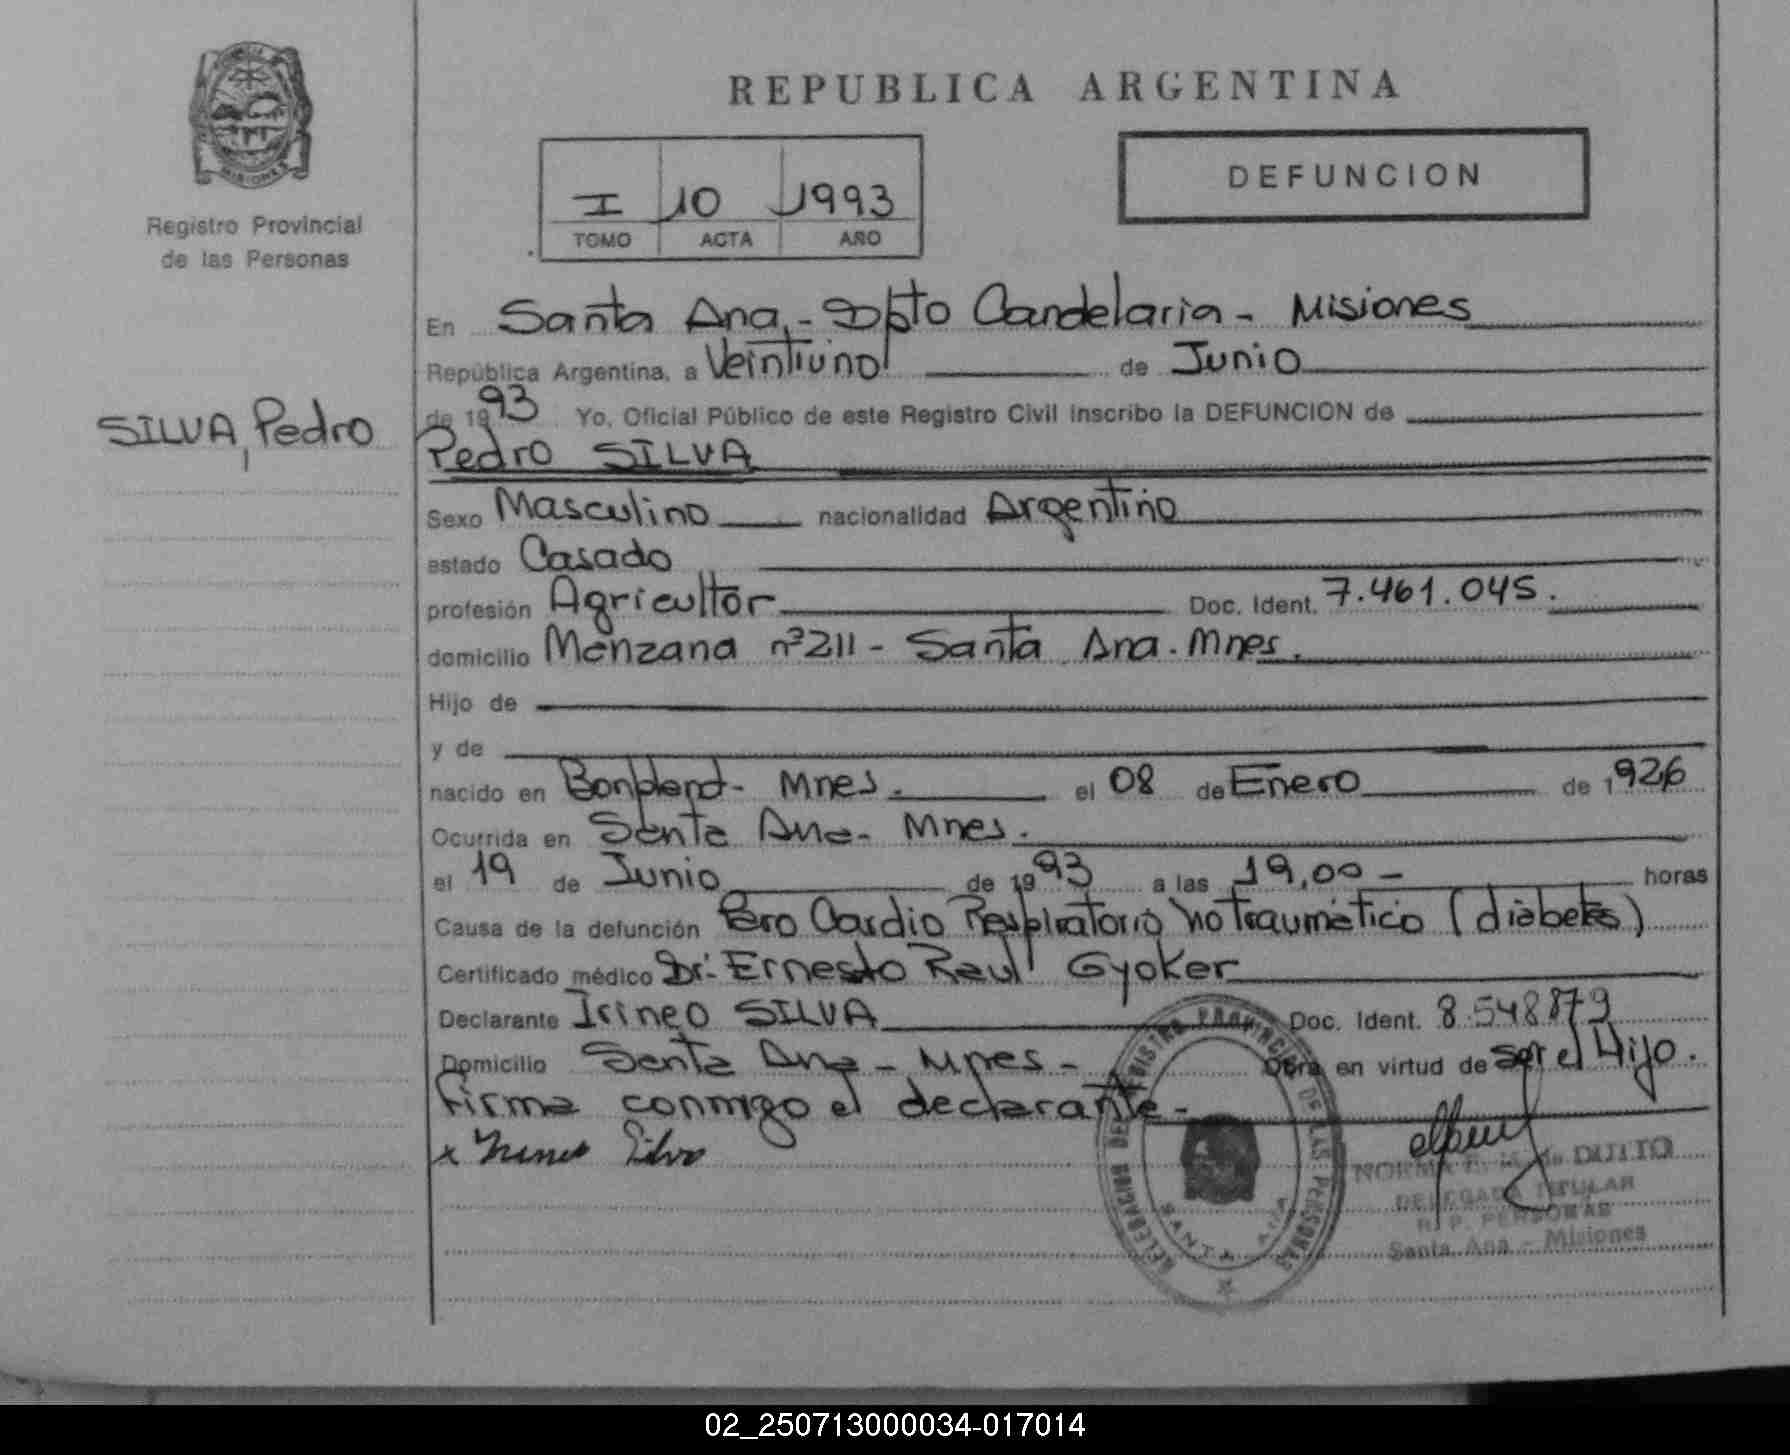 MISIONES
Registro Provincial
de las Personas
REPUBLICA ARGENTINA
I 10 1993
TOMO ACTA AÑO
DEFUNCION
SILVA, Pedro
En Santa Ana,- Dpto Candelaria - Misiones
República Argentina, a Veintiuno de Junio
de 1993 Yo, Oficial Público de este Registro Civil inscribo la DEFUNCION de
Pedro SILVA
Sexo Masculino nacionalidad Argentino
estado Casado
profesión Agricultor Doc. Ident. 7.461.045.
domicilio Manzana nº 211 - Santa Ana. Mnes.
Hijo de
y de
nacido en Bonpland - Mnes. el 08 de Enero de 1926
Ocurrida en Santa Ana - Mnes.
el 19 de Junio de 1993 a las 19,00 - horas
Causa de la defunción Paro Cardio Respiratorio no traumático (diabetes)
Certificado médico Dr. Ernesto Raul Gyoker
Declarante Irineo SILVA Doc. Ident. 8.548.879
Domicilio Santa Ana - Mnes - Obra en virtud de ser el Hijo.
Firma conmigo el declarante -
x Irineo Silva
DELEGACION DEL REGISTRO PROVINCIAL DE LAS PERSONAS
SANTA ANA
NORMA E. de DUTTO
DELEGADA TITULAR
R. P. PERSONAS
Santa Ana - Misiones
02_250713000034-017014